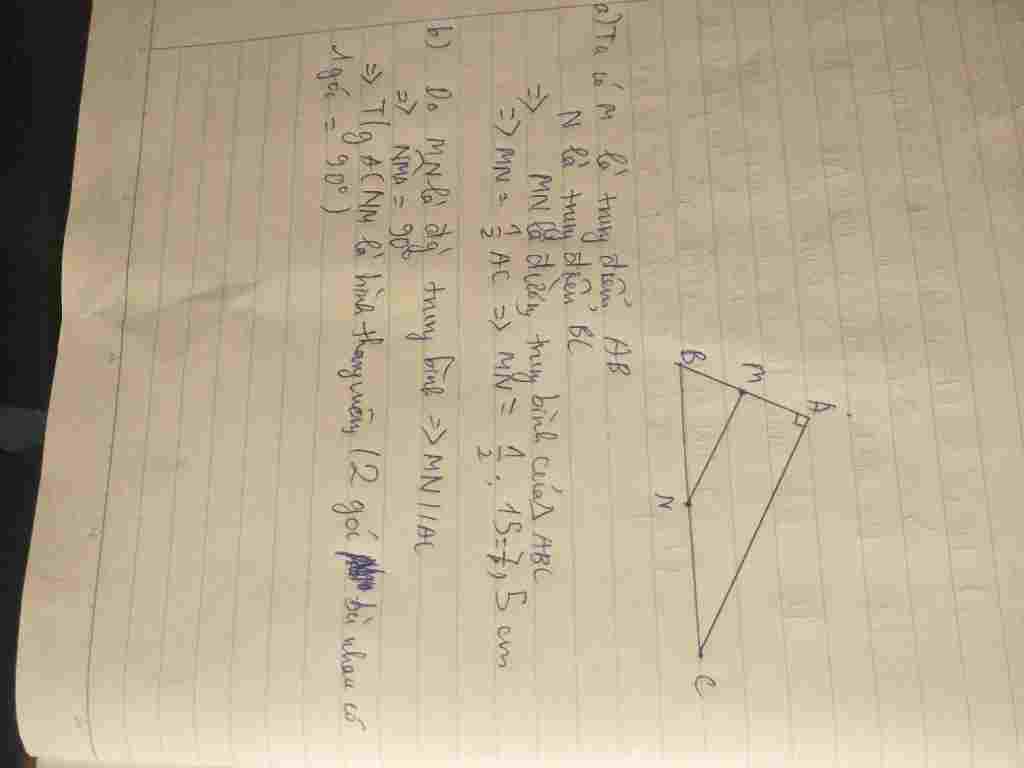 A
M
B
N
C
a) Ta có M là trung điểm AB
N là trung điểm BC
=> MN là đường trung bình của Δ ABC
=> MN = 1/2 AC => MN = 1/2 . 15 = 7,5 cm
b) Do MN là đg trung bình => MN//AC
=> NMA = 90°
=> T/g ACNM là hình thang vuông (2 góc bù nhau có
1 góc = 90°)